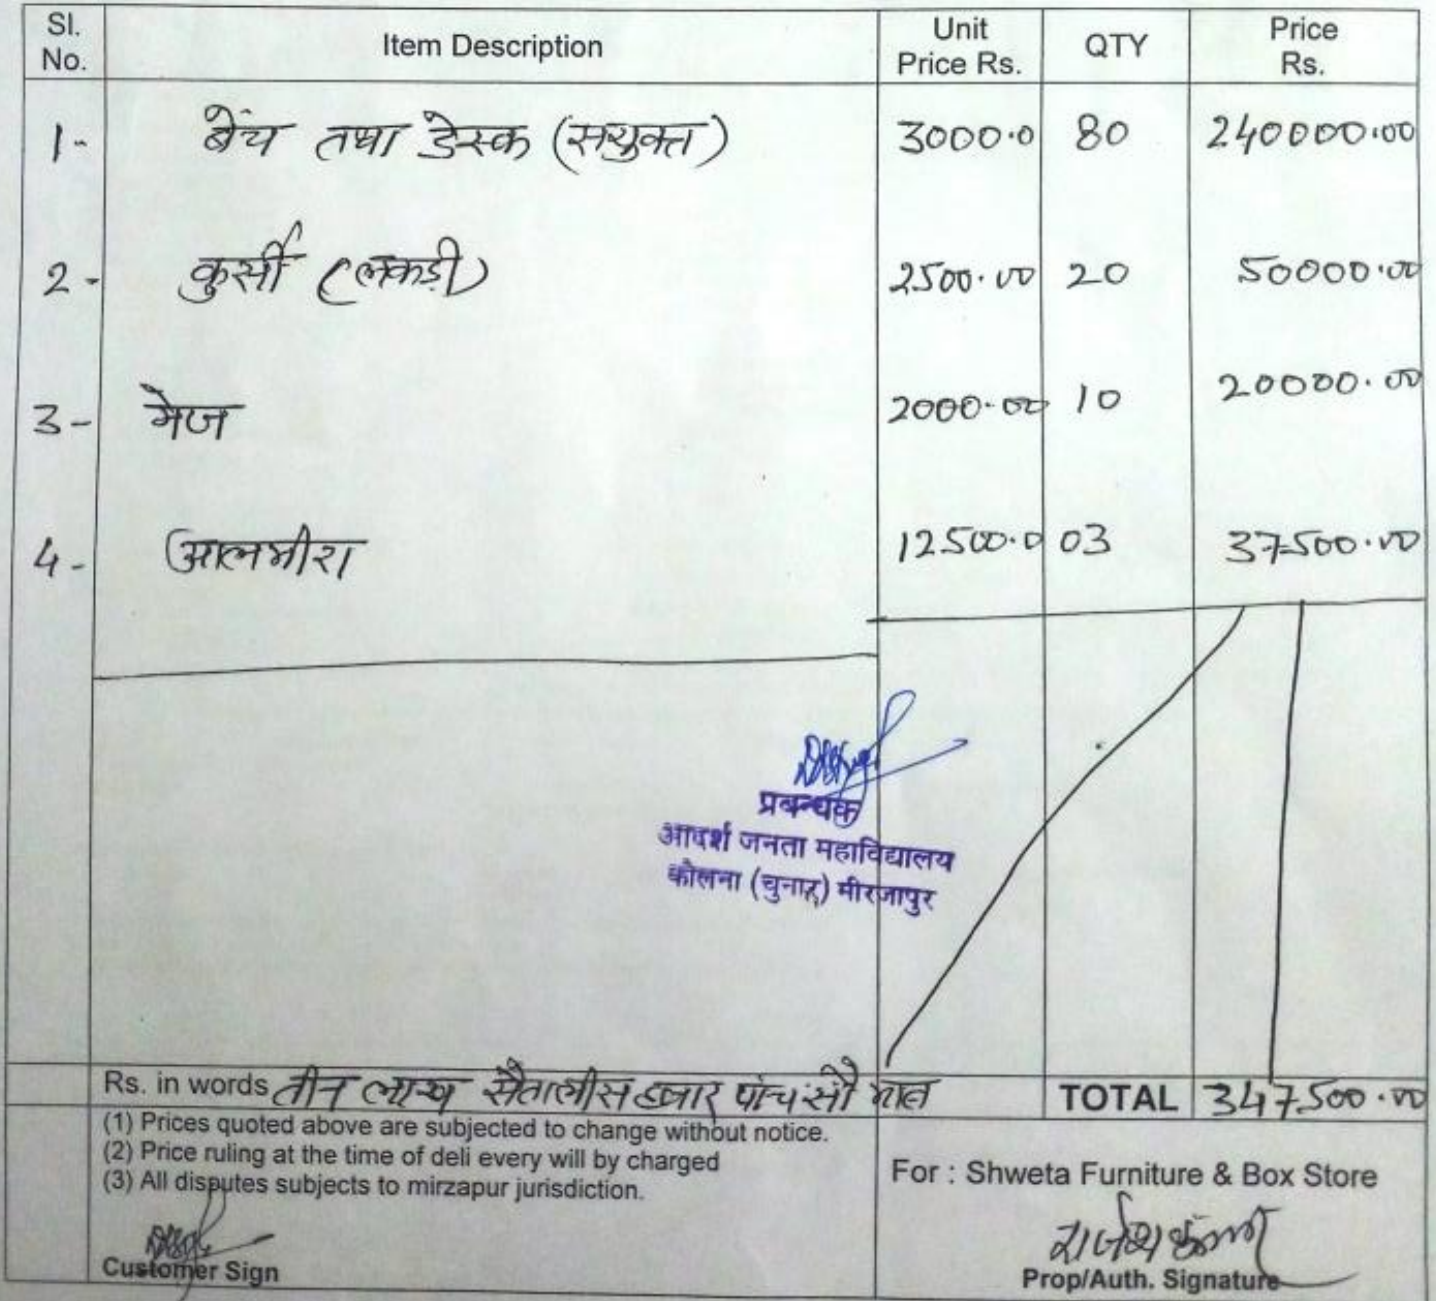 Sl. No. Item Description Unit Price Rs. QTY Price Rs.
1- बेंच तथा डेस्क (सयुक्त) 3000.0 80 240000.00
2- कुर्सी (लकड़ी) 2500.00 20 50000.00
3- मेज 2000.00 10 20000.00
4- आलमीरा 12500.0 03 37500.00
प्रबन्धक
आदर्श जनता महाविद्यालय
कोलना (चुनार) मीरजापुर
Rs. in words तीन लाख सैतालीस हजार पांच सौ मात्र TOTAL 347500.00
(1) Prices quoted above are subjected to change without notice.
(2) Price ruling at the time of deli every will by charged
(3) All disputes subjects to mirzapur jurisdiction.
For : Shweta Furniture & Box Store
Customer Sign
Prop/Auth. Signature